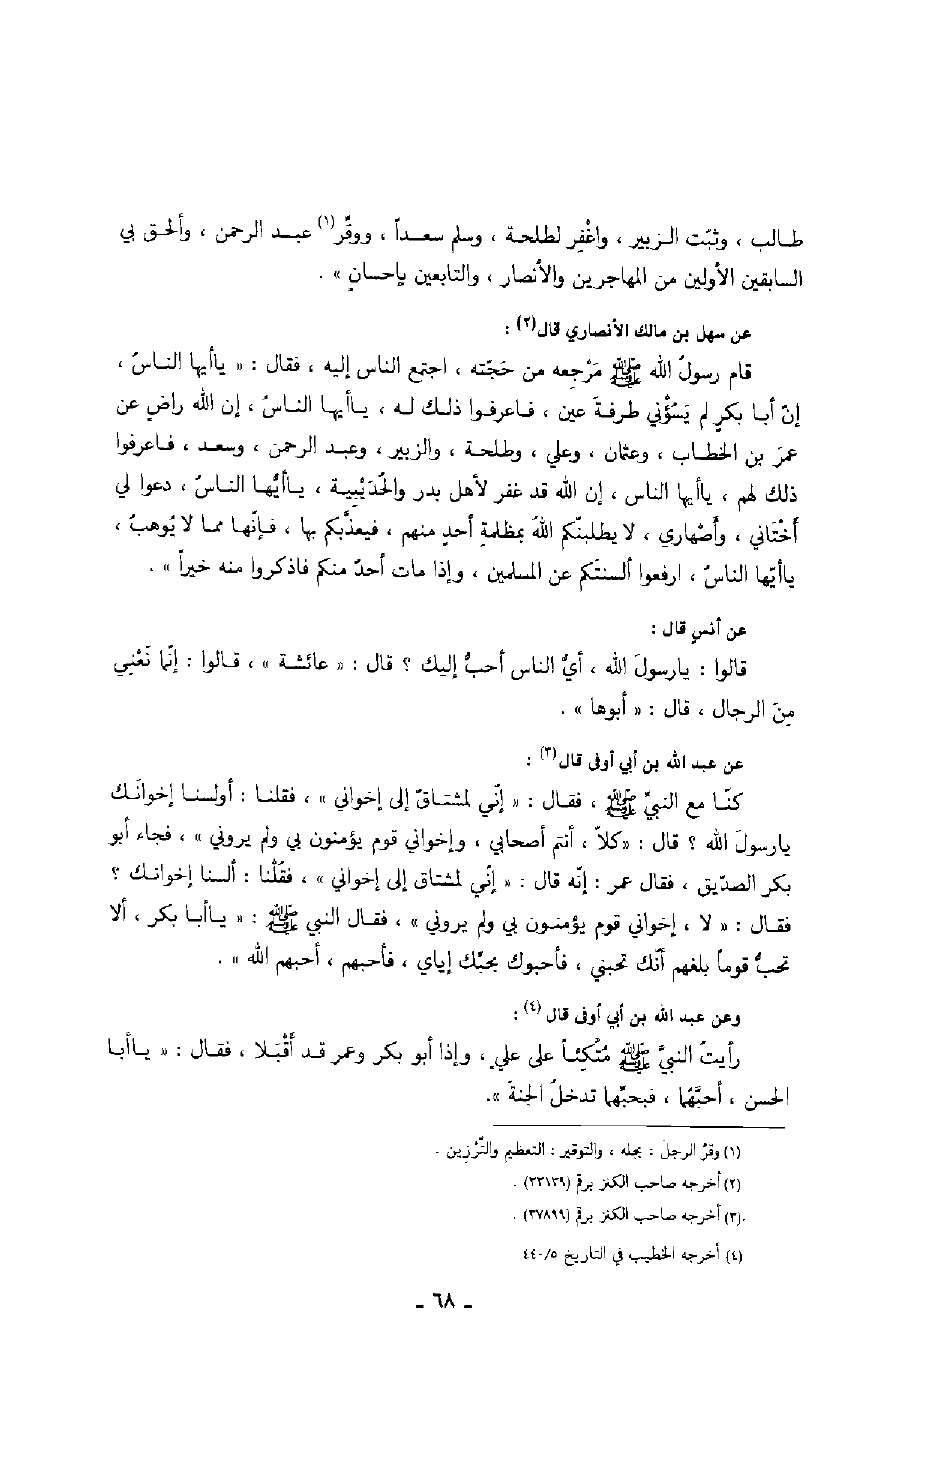 طالب ، وثبّت الزبير ، واغْفِر لطلحة ، وسلم سعداً ، ووقِّر(١) عبد الرحمن ، وألحق بي
السابقين الأولين من المهاجرين والأنصار ، والتابعين بإحسانٍ » .
عن سهل بن مالك الأنصاري قال(٢) :
قام رسولُ الله ﷺ مَرْجِعه من حَجّته ، اجتمع الناس إليه ، فقال : « ياأيها الناسُ ،
إنّ أبا بكرٍ لم يَسُؤْني طرفةَ عين ، فاعرفوا ذلك له ، ياأيها الناسُ ، إن الله راضٍ عن
عمرَ بن الخطاب ، وعثمان ، وعلي ، وطلحة ، والزبير ، وعبد الرحمن ، وسعد ، فاعرفوا
ذلك لهم ، ياأيها الناس ، إن الله قد غفر لأهل بدر والحُدَيْبِية ، ياأيُّها الناسُ ، دعوا لي
أَخْتَاني ، وأَصْهاري ، لا يطلبنّكم اللهُ بمظلمةِ أحدٍ منهم ، فيعذّبكم بها ، فإنّها مما لا يُوهبُ ،
ياأيّها الناسُ ، ارفعوا ألسنتَكم عن المسلمين ، وإذا مات أحدٌ منكم فاذكروا منه خيراً » .
عن أنسٍ قال :
قالوا : يارسولَ الله ، أيُّ الناس أحبُّ إليك ؟ قال : « عائشة » ، قالوا : إنّما نَعْنِي
مِنَ الرجال ، قال : « أبوها » .
عن عبد الله بن أبي أوفى قال(٣) :
كنّا مع النبيِّ ﷺ ، فقال : « إنّي لمشتاقٌ إلى إخواني » ، فقلنا : أولسنا إخوانَك
يارسولَ الله ؟ قال : «كلاّ ، أنتم أصحابي ، وإخواني قوم يؤمنون بي ولم يروني » ، فجاء أبو
بكر الصدّيق ، فقال عمر : إنّه قال : « إنّي لمشتاق إلى إخواني » ، فقُلْنا : ألسنا إخوانك ؟
فقال : « لا ، إخواني قوم يؤمنون بي ولم يروني » ، فقال النبي ﷺ : « ياأبا بكر ، ألا
تحبُّ قوماً بلغهم أنّك تحبني ، فأحبوك بحبّك إياي ، فأحبهم ، أحبهم الله » .
وعن عبد الله بن أبي أوفى قال(٤) :
رأيتُ النبيَّ ﷺ مُتّكِئاً على عليٍ ، وإذا أبو بكر وعمر قد أَقْبَلا ، فقال : « ياأبا
الحسن ، أحبَّهُما ، فبحبّهما تدخلُ الجنةَ ».
(١) وقرّ الرجلَ : بجله ، والتوقير : التعظيم والتَّرْزِين .
(٢) أخرجه صاحب الكنز برقم (٣٣١٣٩) .
.(٣) أخرجه صاحب الكنز برقم (٣٧٨٩٩) .
(٤) أخرجه الخطيب في التاريخ ٤٤٠/٥
ـ ٦٨ ـ